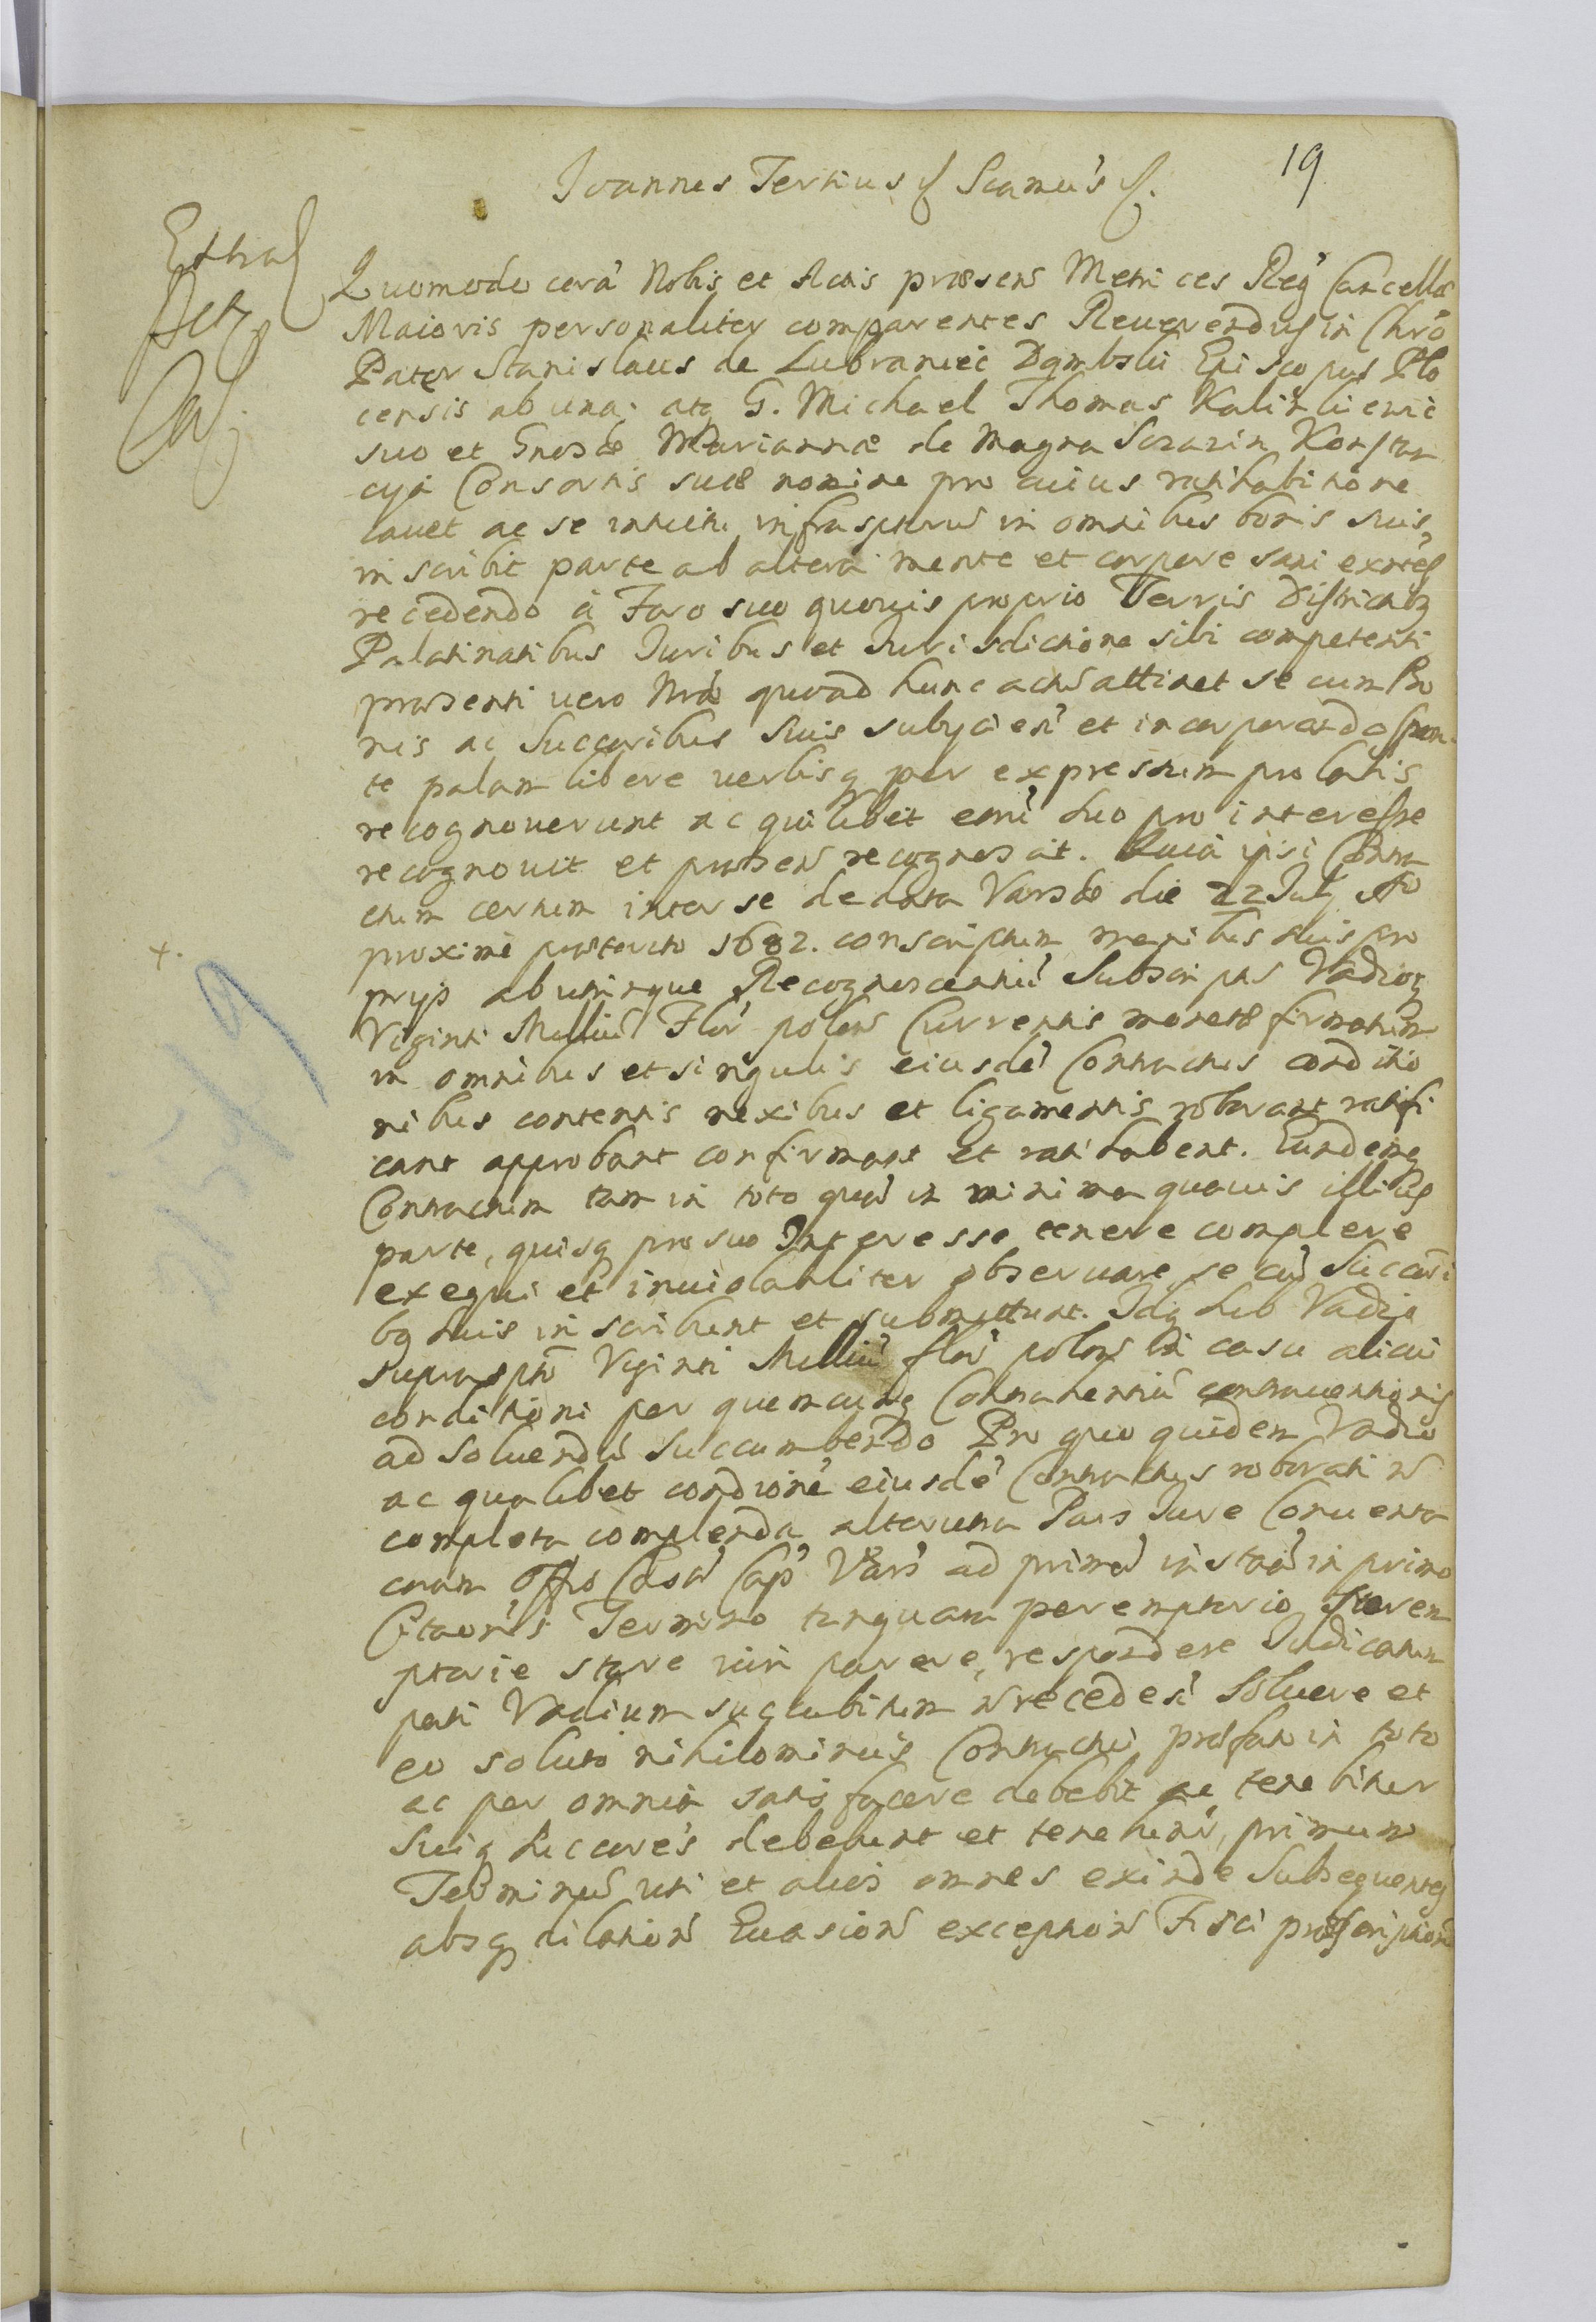 19
Joannes Tertius Scamus
Quomodo corā Nobis et Actis præsen Metrices Reg Cancellæ
Maioris personaliter comparentes Reuerendus in Chrō
Pater Stanislaus de Lubraniec Dąmbski Episcopus Plo
censis ab una atq G. Michael Thomas
suo et Gnosæ Mariannæ de Magna
cyą Consortis suæ nomine pro cuius ratihabitione
cauet ac se intuitu infrasptorū in omnibus bonis suis,
inscribit parte ab altera mente et corpore sani exntes
recedendo à Foro suo quouis proprio Terris Districtibq
Palatinatibus Juribus et Jurisdictione sibi competenti
præsenti uero Nræ quoad hunc actū attinet se cum Bo
nis ac Succoribus Suis subÿcien et incorporando spon
te palam libere uerbisq per expressum prolatis
recognouerunt ac quilibet eorū suo pro interesse
recognouit et præsen recognoscit. Quia ipsi Contra
ctum certum inter se de data Varsæ die 22 Julÿ Ao
proximè præterito 1682. conscriptum manibus suis pro
prÿs ab utrinque Recognoscentiū Subscriptū Vadioq
Viginti Milliū Flor polon Currentis monetæ firmatum
in omnibus et singulis eiusdē Contractus conditio
nibus contentis nexibus et ligamentis roborant ratifi
cant approbant confirmant et ratihabent. Eundemq
Contractum tam in toto quā in minima quauis illius
parte, quisq pro suo Interesse tenere complere
exequi et inuiolabiliter obseruare se cū Succori
bq suis inscribunt et submittunt. Idq sub Vadio
suprasptō Viginti Milliū flor polon in casu alicui
conditioni per quemcunq Contrahentiū contrauentionis
ad soluendū succumbendo Pro quo quidem Vadio
ac qualibet condicione eiusdē Contractus roborati n
completa complenda altera una Pars Jure Conuenta
coram Offo Cap Vars ad primā instā in primo
Citaonis Termino tanquam peremptorio Perem
ptorie stare iuri parere, respondere Judicatum
pati Vadium succubitum n receden Soluere et
eo soluto nihilominus Contractui præfato in toto
ac per omnia satisfacere debebit ac tenebitur
Suiq Succores debebunt et tenebunt, primum
Terminū uti et alios omnes exinde Subsequentes
absq dilation Euasion exception Fisci præscription